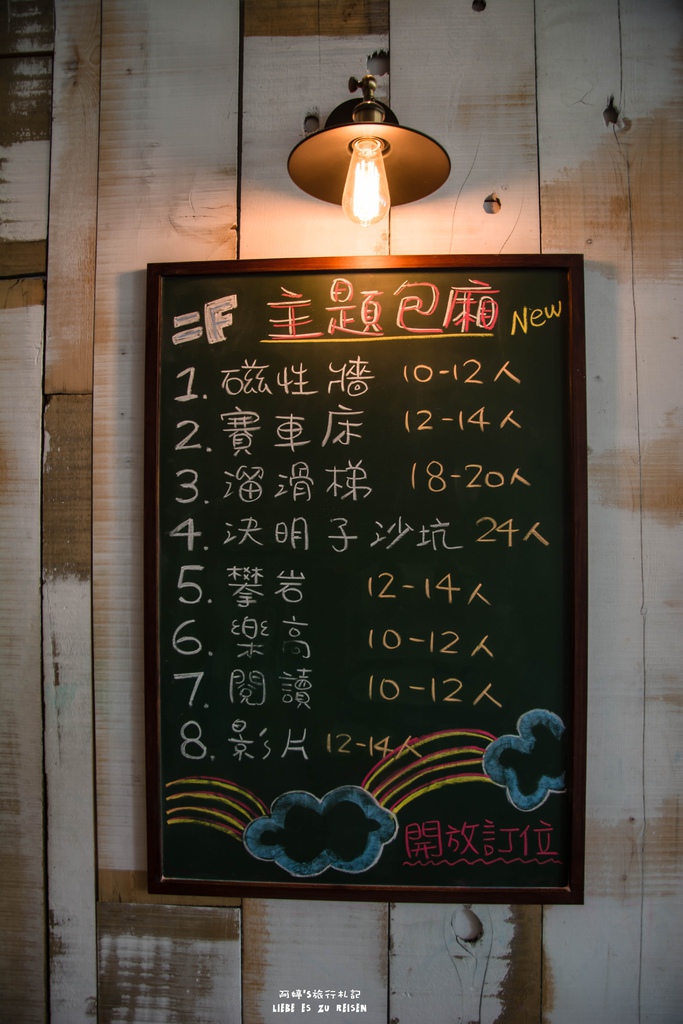 二F 主題包廂 New
1. 磁性牆 10-12人
2. 賽車床 12-14人
3. 溜滑梯 18-20人
4. 決明子沙坑 24人
5. 攀岩 12-14人
6. 樂高 10-12人
7. 閱讀 10-12人
8. 影片 12-14人
開放訂位
阿婷's旅行札記
LIEBE ES ZU REISEN